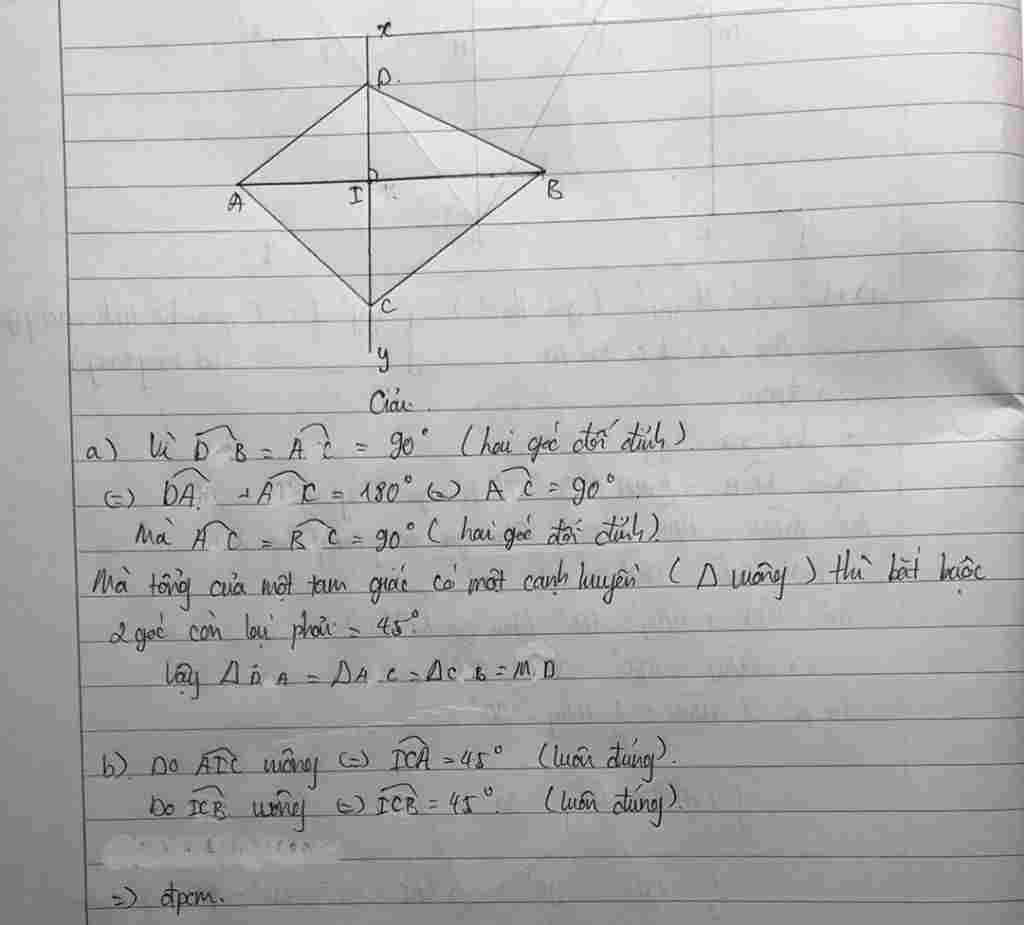 x
D.
A
I
B
C
y
Giải.
a) Vì D B = A C = 90° (hai góc đối đỉnh)
(=) DA. + A C = 180° (=) A C = 90°.
Mà A C = B C = 90° ( hai góc đối đỉnh).
Mà tổng của một tam giác có một cạnh huyền ( Δ vuông ) thì bắt buộc
2 góc còn lại phải = 45°.
Vậy Δ D A = ΔA C = ΔC B = D
b) Do AIC vuông (=) ICA = 45° (luôn đúng).
Do ICB vuông (=) ICB = 45°. (luôn đúng).
=) đpcm.